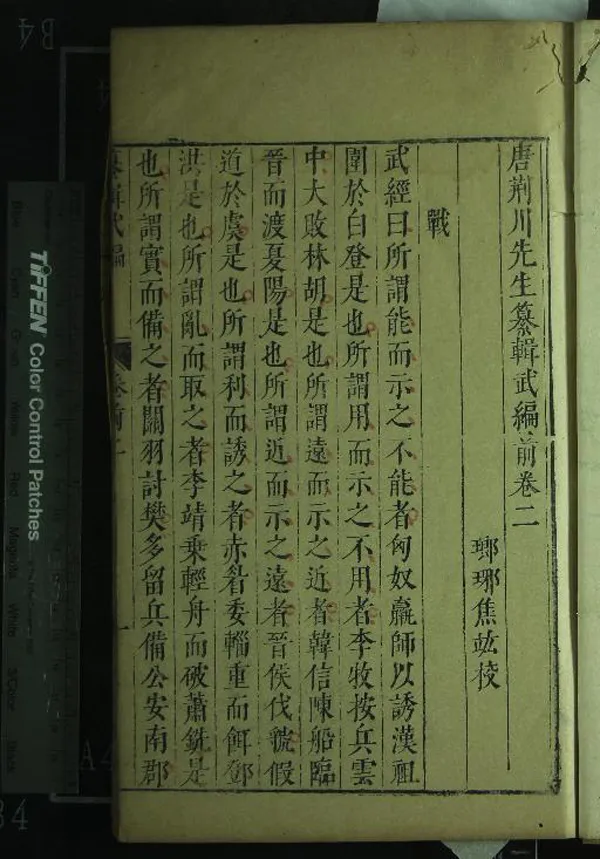 唐荊川先生纂輯武編前卷二
瑯琊焦竑校
戰
武經曰所謂能而示之不能者匈奴羸師以誘漢祖
圍於白登是也所謂用而示之不用者李牧按兵雲
中大敗林胡是也所謂遠而示之近者韓信陳船臨
晉而渡夏陽是也所謂近而示之遠者晉侯伐虢假
道於虞是也所謂利而誘之者赤眉委輜重而餌鄧
洪是也所謂亂而取之者李靖乘輕舟而破蕭銑是
也所謂實而備之者關羽討樊多留兵備公安南郡
TIFFEN Color Control Patches
B4
A4